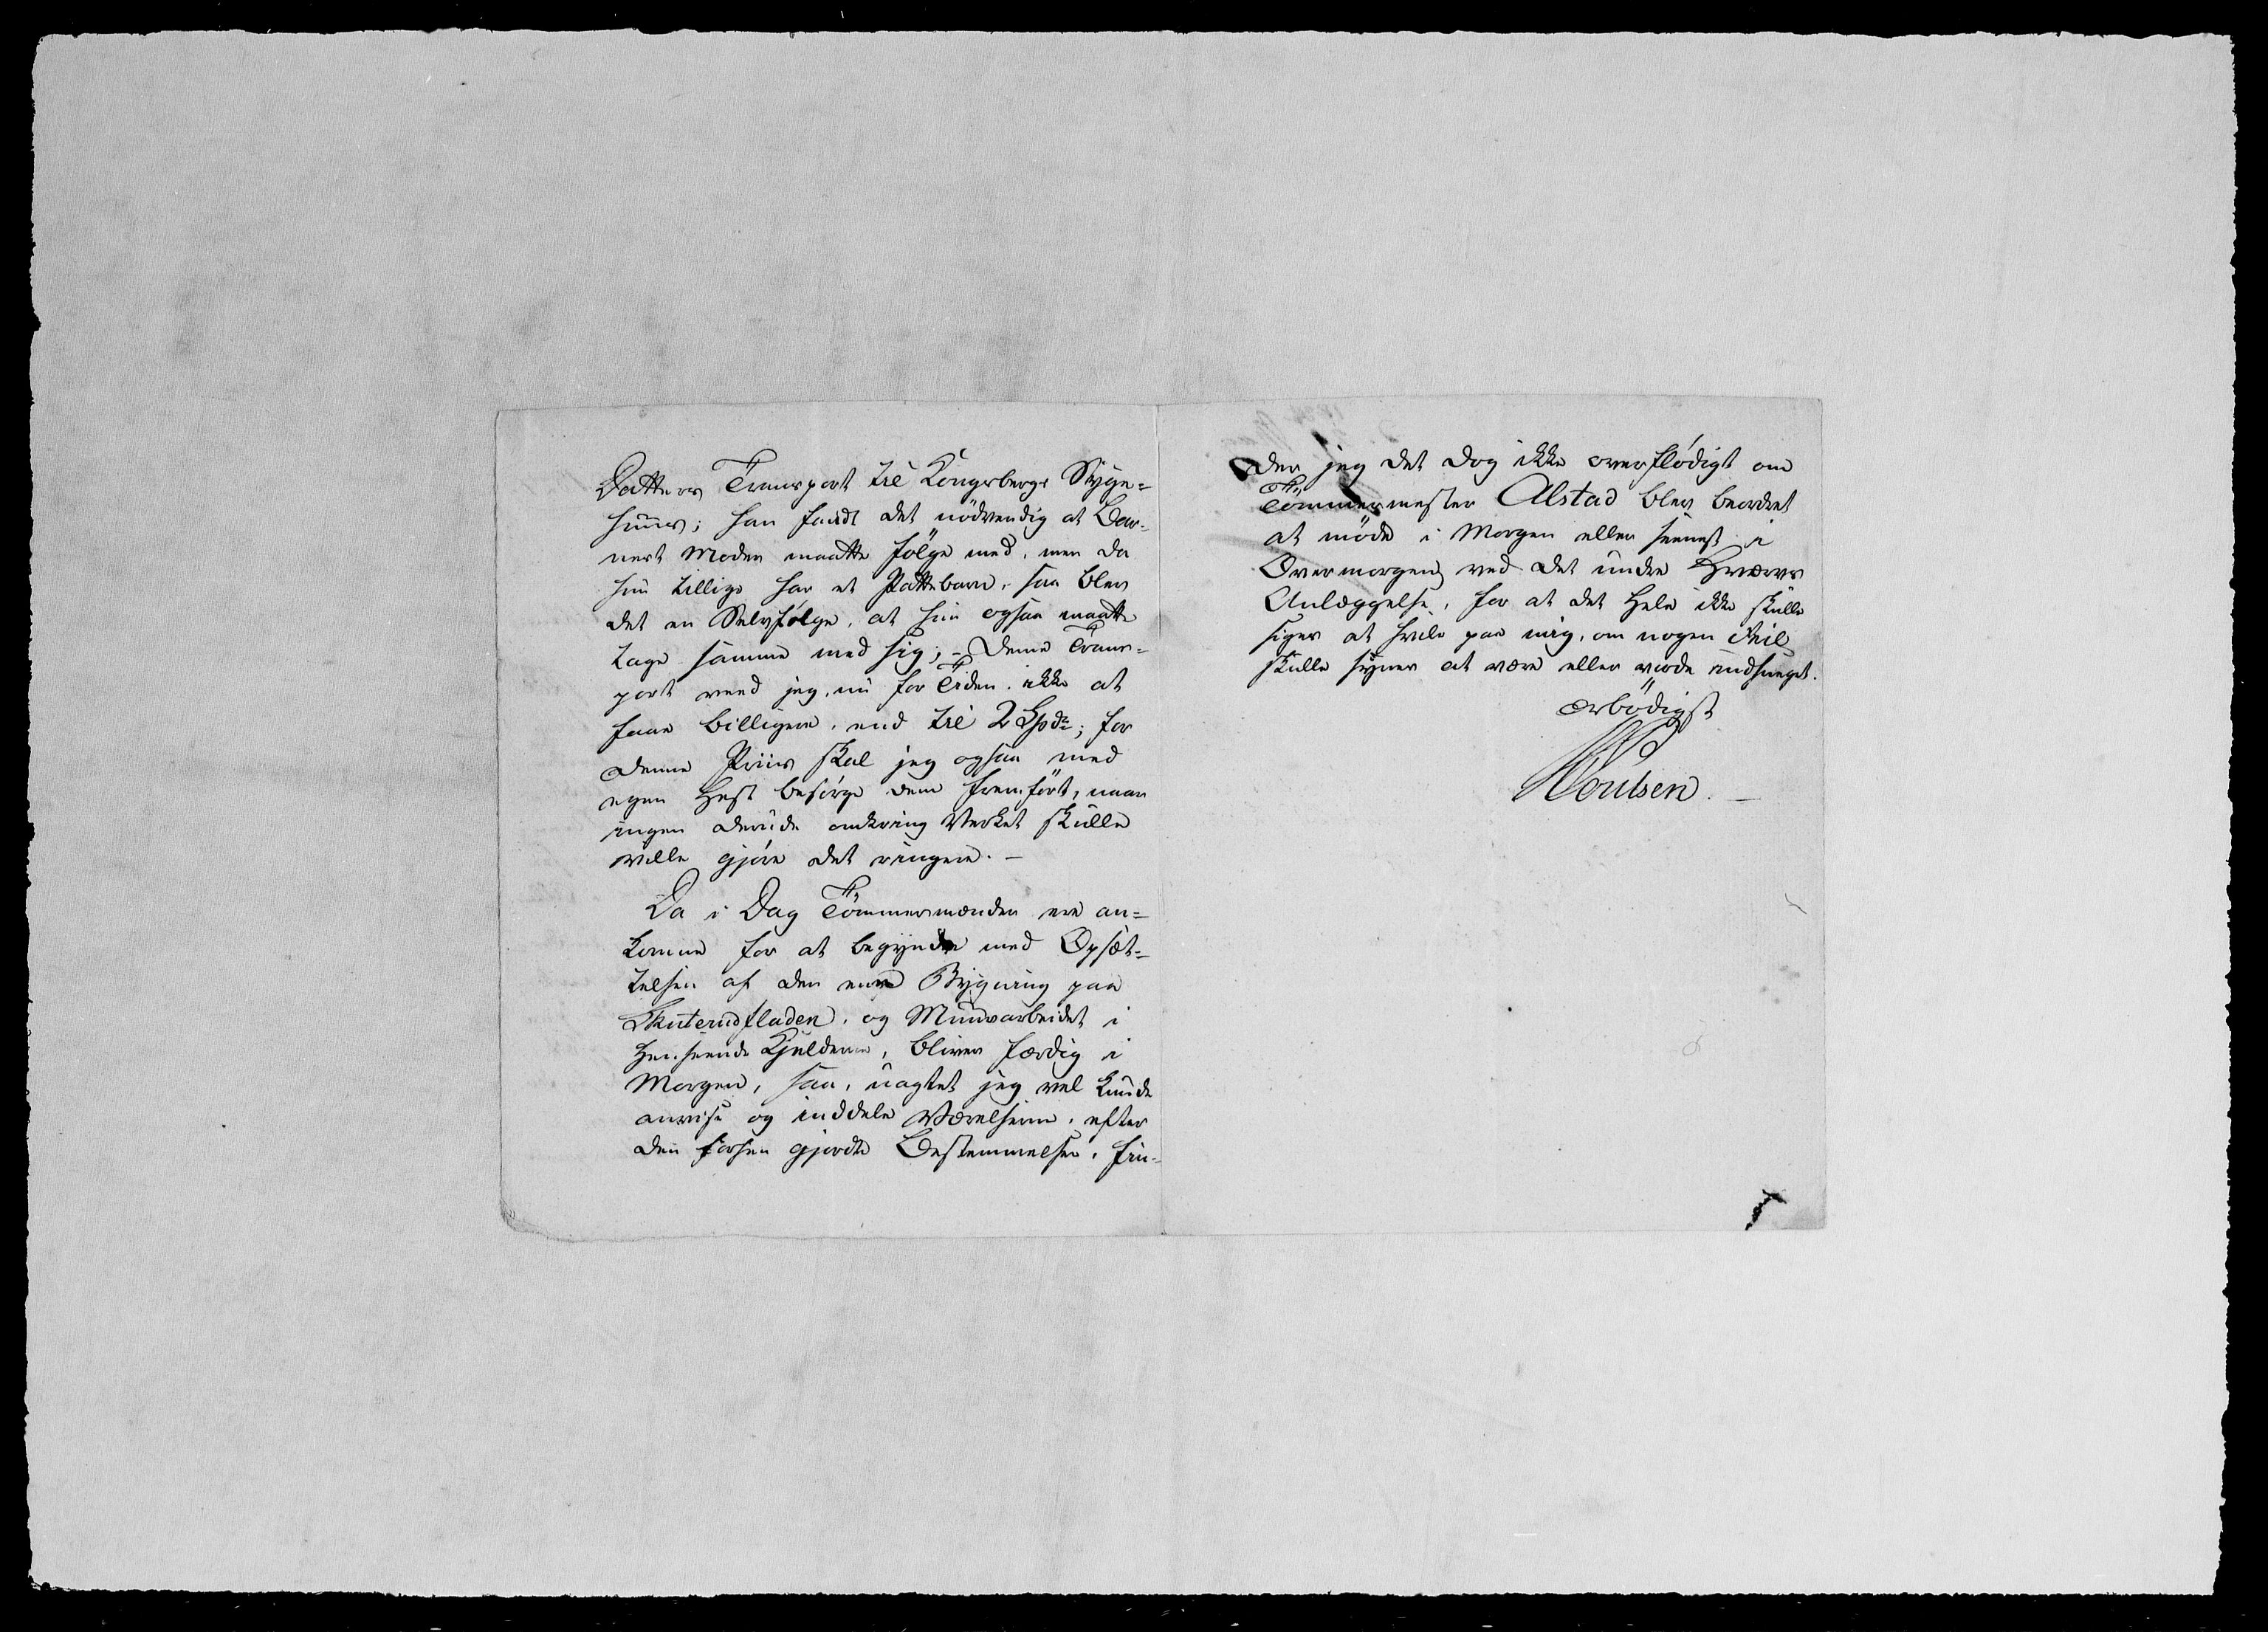 Datters Transport til Kongsbergs Syge-
huus; han fandt det nödvendig at Bar-
nets Moder maatte fölge med, men da
hun tillige har et Pattebarn, saa blev
det en Selvfölge, at hun ogsaa maatte
tage samme med sig; - denne Trans-
port veed jeg nu for Tiden ikke at
faae billigere, end til 2 Spd; for
denne Priis skal jeg ogsaa med
egen Hest besörge dem fremfört, naar
ingen derude omkring Verket skulle
ville gjöre det ringere. -
Da i Dag Tömmermænden ere an-
komne for at begynde med Opsæt-
telsen af den Bygning paa
Skuterudfladen, og Muurarbeidet i
Henseende Kjelderen, bliver færdig i
Morgen, saa, uagtet jeg vel kunde
anvise og inddele Værelserne, efter
den forhen gjorte Bestemmelse, fin-
der jeg det dog ikke overflödigt om
Tömmermester Alstad blev beordret
at möde i Morgen eller seenest i
Overmorgen ved det
Anlæggelse, for at det Hele ikke skulle
siges at hvile paa mig, om nogen Feil
skulle synes at være eller vorde
ærbödigst
Poulsen. -